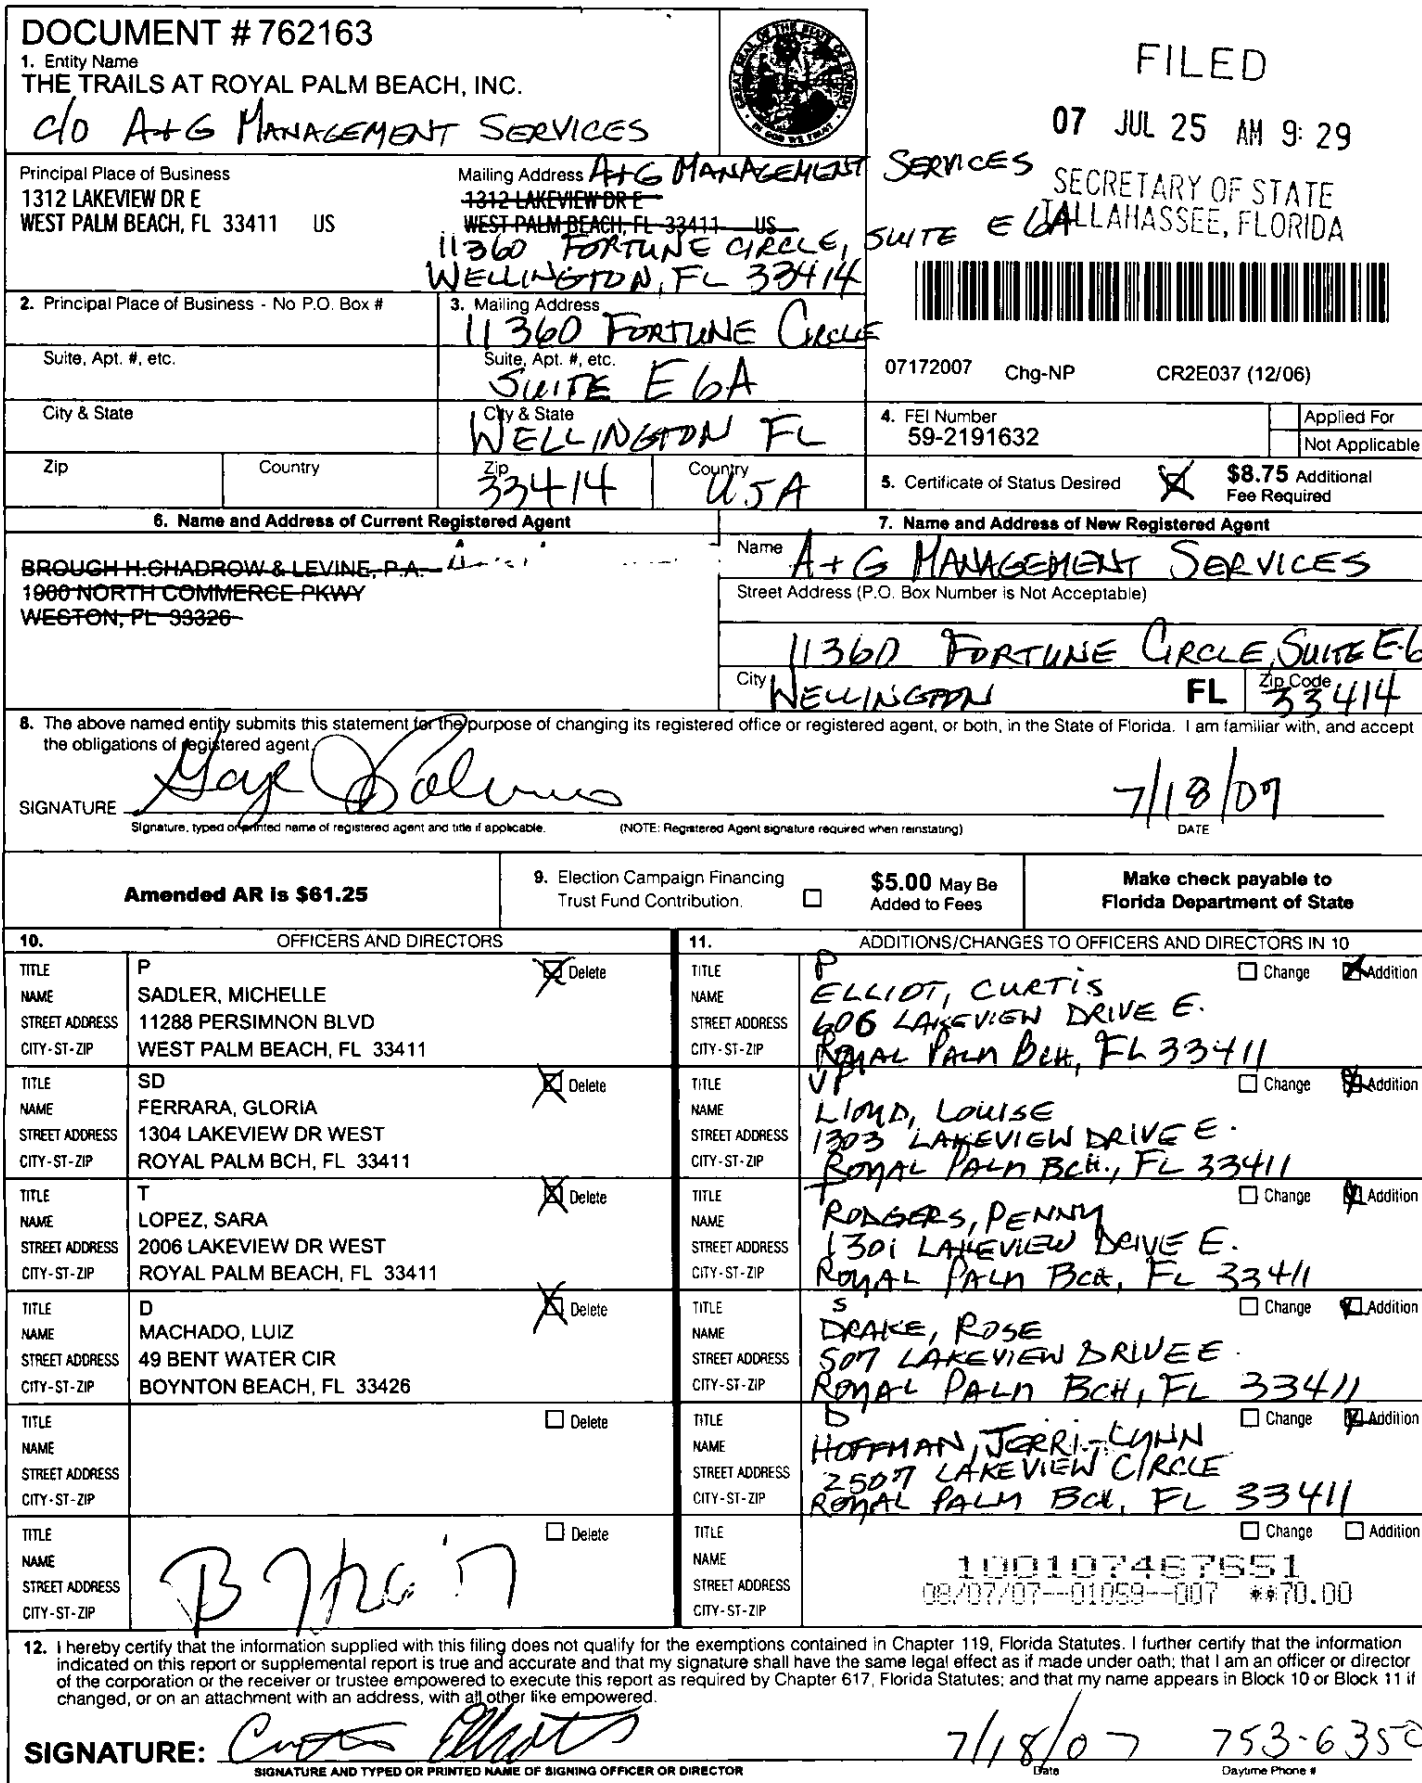 DOCUMENT # 762163
1. Entity Name
THE TRAILS AT ROYAL PALM BEACH, INC.
c/o A+G MANAGEMENT SERVICES
GREAT SEAL OF THE STATE OF FLORIDA
IN GOD WE TRUST
FILED
07 JUL 25 AM 9:29
SECRETARY OF STATE
TALLAHASSEE, FLORIDA
Principal Place of Business
1312 LAKEVIEW DR E
WEST PALM BEACH, FL 33411 US
Mailing Address A+G MANAGEMENT SERVICES
1312 LAKEVIEW DR E
WEST PALM BEACH, FL 33411 US
11360 FORTUNE CIRCLE, SUITE E6A
WELLINGTON, FL 33414
2. Principal Place of Business - No P.O. Box #
Suite, Apt. #, etc.
City & State
Zip Country
3. Mailing Address
11360 FORTUNE CIRCLE
Suite, Apt. #, etc.
SUITE E6A
City & State
WELLINGTON FL
Zip Country
33414 USA
07172007 Chg-NP CR2E037 (12/06)
4. FEI Number
59-2191632
Applied For
Not Applicable
5. Certificate of Status Desired
$8.75 Additional
Fee Required
6. Name and Address of Current Registered Agent
BROUGH H.CHADROW & LEVINE, P.A.
1900 NORTH COMMERCE PKWY
WESTON, FL 33326
7. Name and Address of New Registered Agent
Name A+G MANAGEMENT SERVICES
Street Address (P.O. Box Number is Not Acceptable)
11360 FORTUNE CIRCLE, SUITE E-6
City WELLINGTON FL Zip Code 33414
8. The above named entity submits this statement for the purpose of changing its registered office or registered agent, or both, in the State of Florida. I am familiar with, and accept
the obligations of registered agent.
SIGNATURE 7/18/07
Signature, typed or printed name of registered agent and title if applicable. (NOTE: Registered Agent signature required when reinstating) DATE
Amended AR is $61.25
9. Election Campaign Financing
Trust Fund Contribution.
$5.00 May Be
Added to Fees
Make check payable to
Florida Department of State
10. OFFICERS AND DIRECTORS
TITLE P Delete
NAME SADLER, MICHELLE
STREET ADDRESS 11288 PERSIMNON BLVD
CITY-ST-ZIP WEST PALM BEACH, FL 33411
TITLE SD Delete
NAME FERRARA, GLORIA
STREET ADDRESS 1304 LAKEVIEW DR WEST
CITY-ST-ZIP ROYAL PALM BCH, FL 33411
TITLE T Delete
NAME LOPEZ, SARA
STREET ADDRESS 2006 LAKEVIEW DR WEST
CITY-ST-ZIP ROYAL PALM BEACH, FL 33411
TITLE D Delete
NAME MACHADO, LUIZ
STREET ADDRESS 49 BENT WATER CIR
CITY-ST-ZIP BOYNTON BEACH, FL 33426
TITLE Delete
NAME
STREET ADDRESS
CITY-ST-ZIP
TITLE Delete
NAME
STREET ADDRESS
CITY-ST-ZIP
11. ADDITIONS/CHANGES TO OFFICERS AND DIRECTORS IN 10
TITLE P Change Addition
NAME ELLIOT, CURTIS
STREET ADDRESS 606 LAKEVIEW DRIVE E.
CITY-ST-ZIP ROYAL PALM BCH, FL 33411
TITLE VP Change Addition
NAME LLOYD, LOUISE
STREET ADDRESS 1303 LAKEVIEW DRIVE E.
CITY-ST-ZIP ROYAL PALM BCH., FL 33411
TITLE T Change Addition
NAME RODGERS, PENNY
STREET ADDRESS 1301 LAKEVIEW DRIVE E.
CITY-ST-ZIP ROYAL PALM BCH, FL 33411
TITLE S Change Addition
NAME DRAKE, ROSE
STREET ADDRESS 507 LAKEVIEW DRIVE E.
CITY-ST-ZIP ROYAL PALM BCH, FL 33411
TITLE D Change Addition
NAME HOFFMAN, JERRI-LYNN
STREET ADDRESS 2507 LAKEVIEW CIRCLE
CITY-ST-ZIP ROYAL PALM BCH, FL 33411
TITLE Change Addition
NAME 100107467651
STREET ADDRESS 08/07/07--01059--007 **70.00
CITY-ST-ZIP
12. I hereby certify that the information supplied with this filing does not qualify for the exemptions contained in Chapter 119, Florida Statutes. I further certify that the information
indicated on this report or supplemental report is true and accurate and that my signature shall have the same legal effect as if made under oath; that I am an officer or director
of the corporation or the receiver or trustee empowered to execute this report as required by Chapter 617, Florida Statutes; and that my name appears in Block 10 or Block 11 if
changed, or on an attachment with an address, with all other like empowered.
SIGNATURE: Curtis Elliott 7/18/07 753-6350
SIGNATURE AND TYPED OR PRINTED NAME OF SIGNING OFFICER OR DIRECTOR Date Daytime Phone #